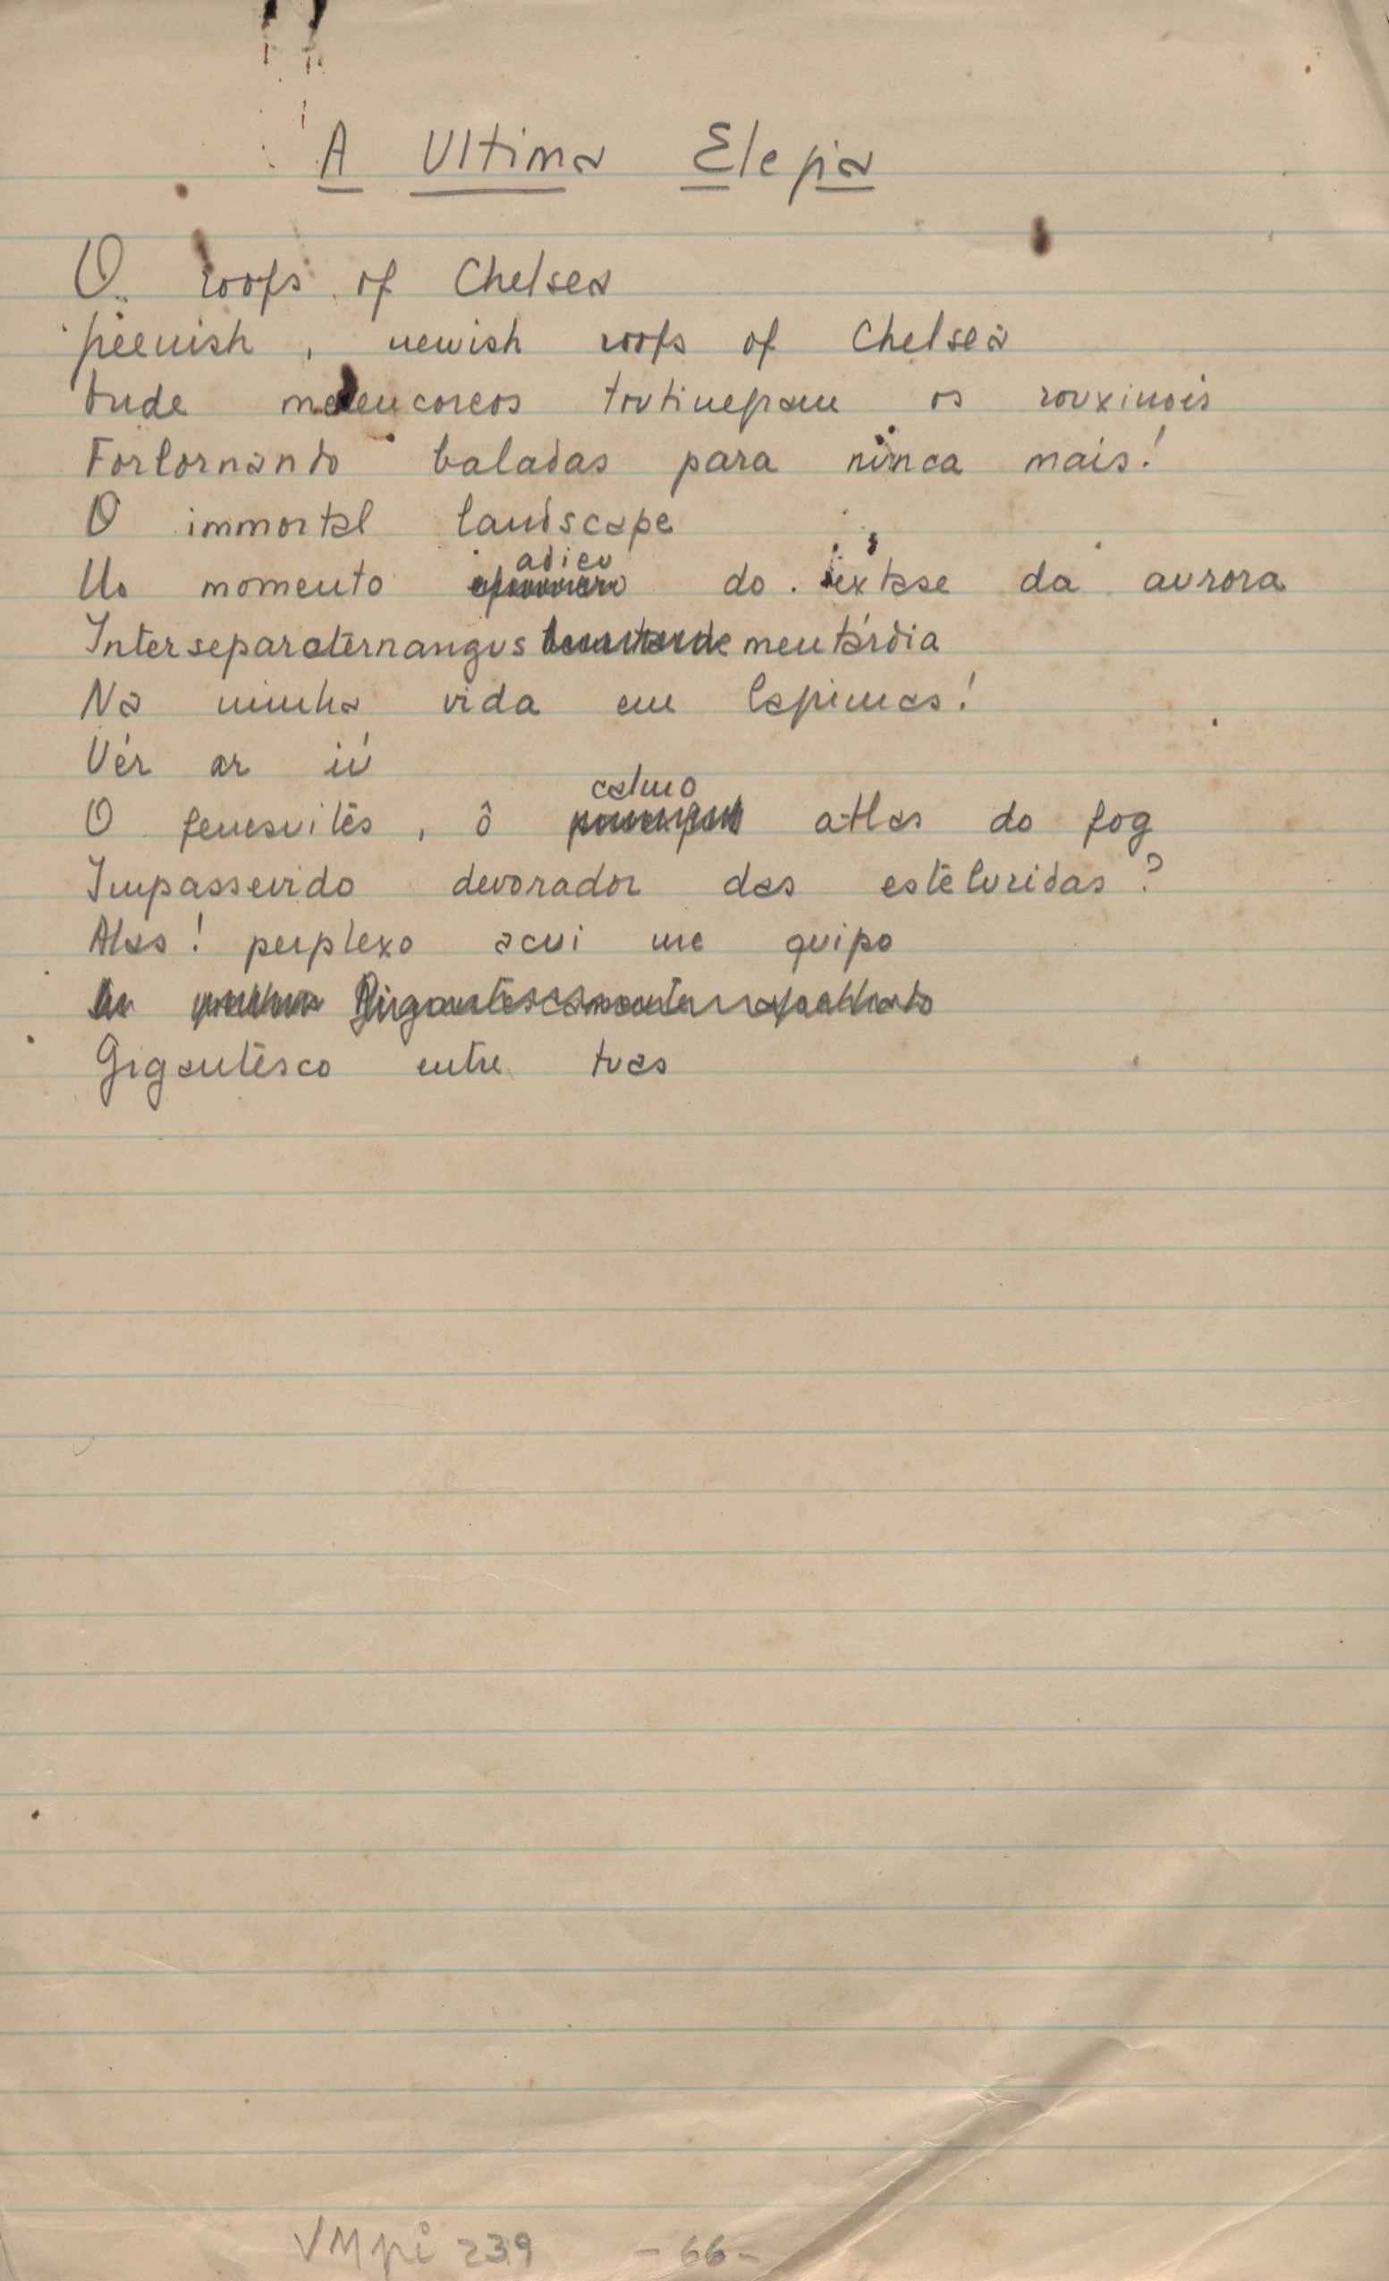 A Ultima Elegia
O roofs of Chelsea
peevish, newish roofs of Chelsea
Onde melencoreos toutinegram os rouxinois
Forlornando baladas para nunca mais!
O immortal landscape
No momento adieu do extase da aurora
Interseparaternangus mentárdia
Na minha vida em lagrimas!
Vér ar iú
O fenesuites, ô calmo atlas do fog
Impassevido devorador das esteluridas?
Alas! perplexo acui me quipo
Gigantêsco entre tuas
VMpi 239 - 66 -